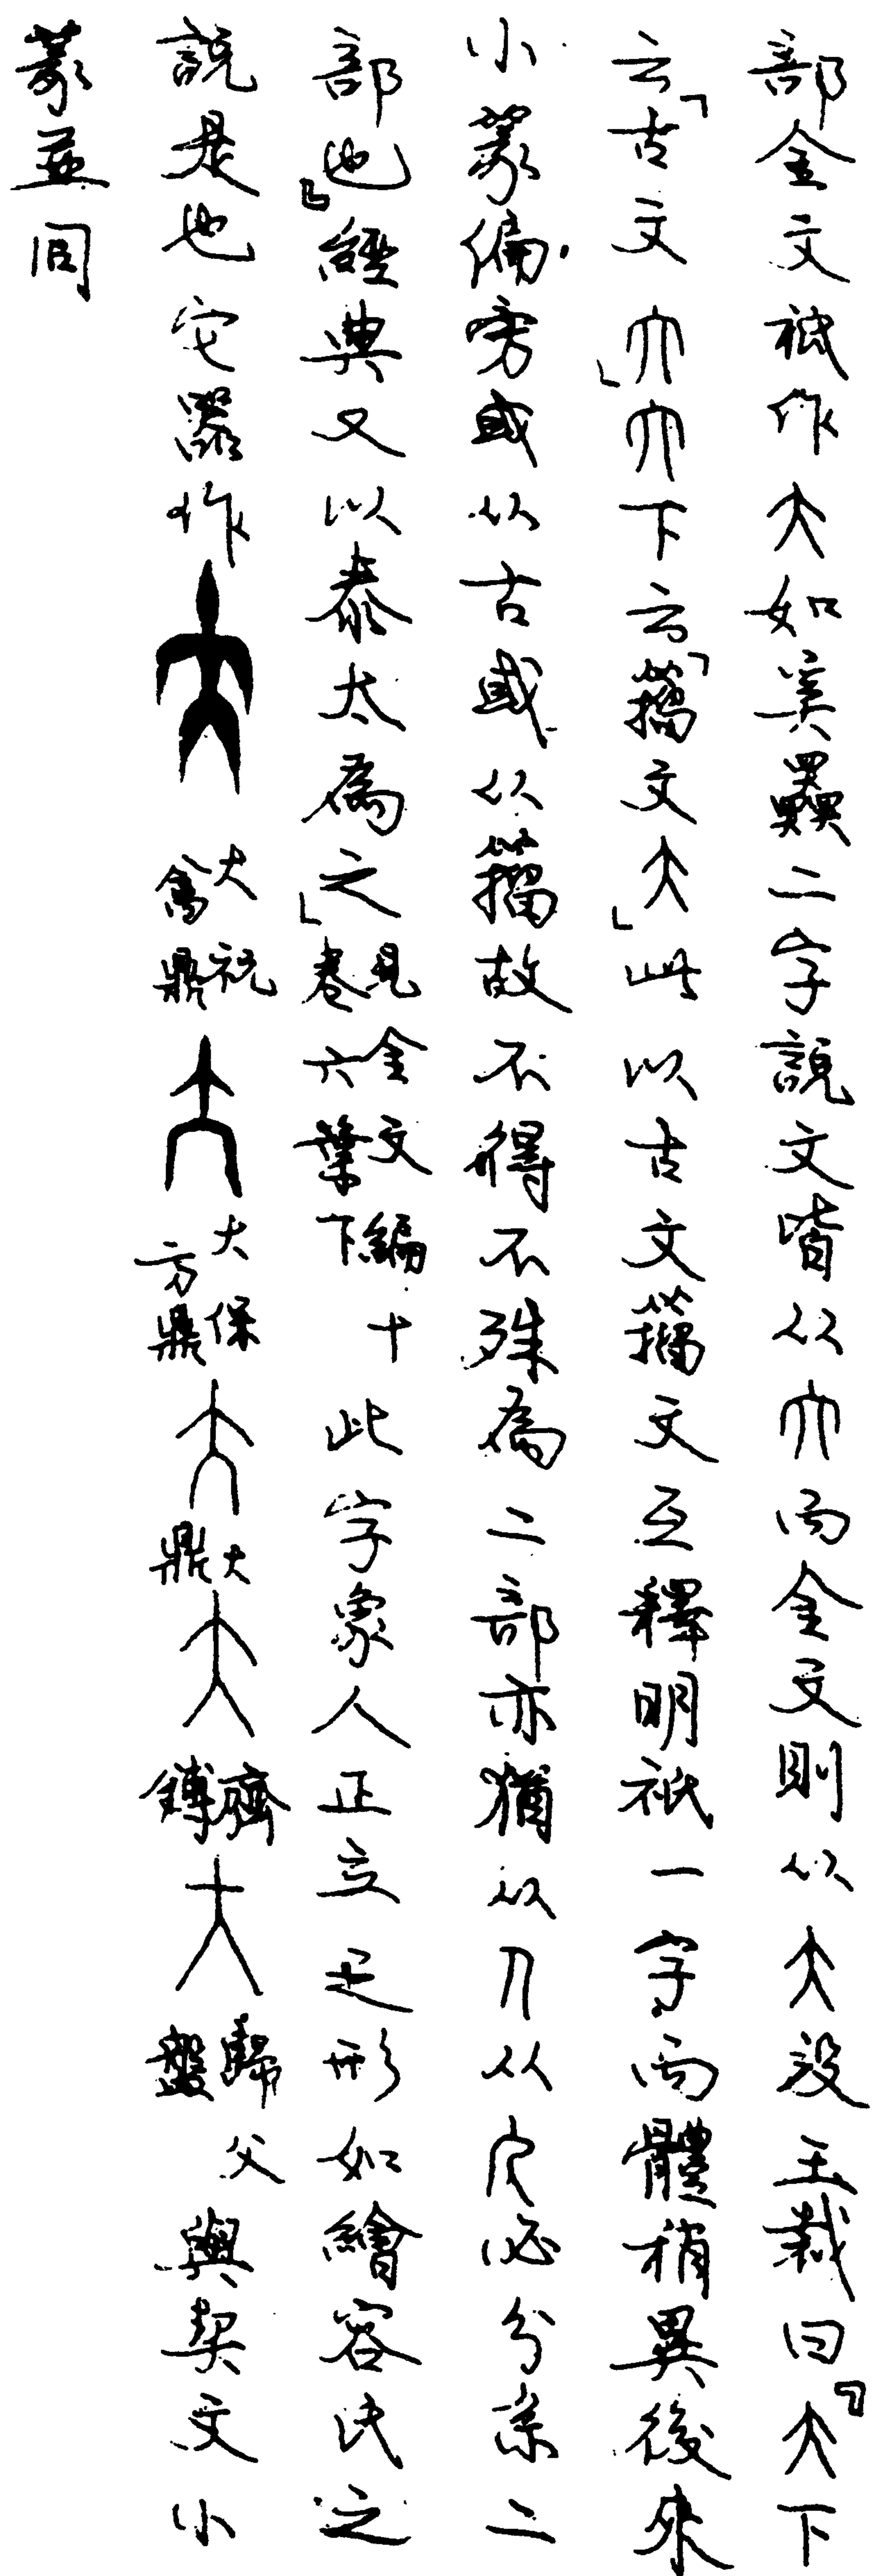 部金文祇作大如奚𡘲二字說文皆从亣而金文則从大段玉裁曰『大下
云「古文亣」亣下云「籒文大」此以古文籒文互釋明祇一字而體稍異後來
小篆偏旁或从古或从籒故不得不殊為二部亦猶从𠘧从皮必分系二
部也』經典又以泰太為之」見金文編十卷六葉下此字象人正立之形如繪容氏之
說是也它器作大大祝禽鼎大大保方鼎大大鼎大齊鎛大歸父盤與契文小
篆並同